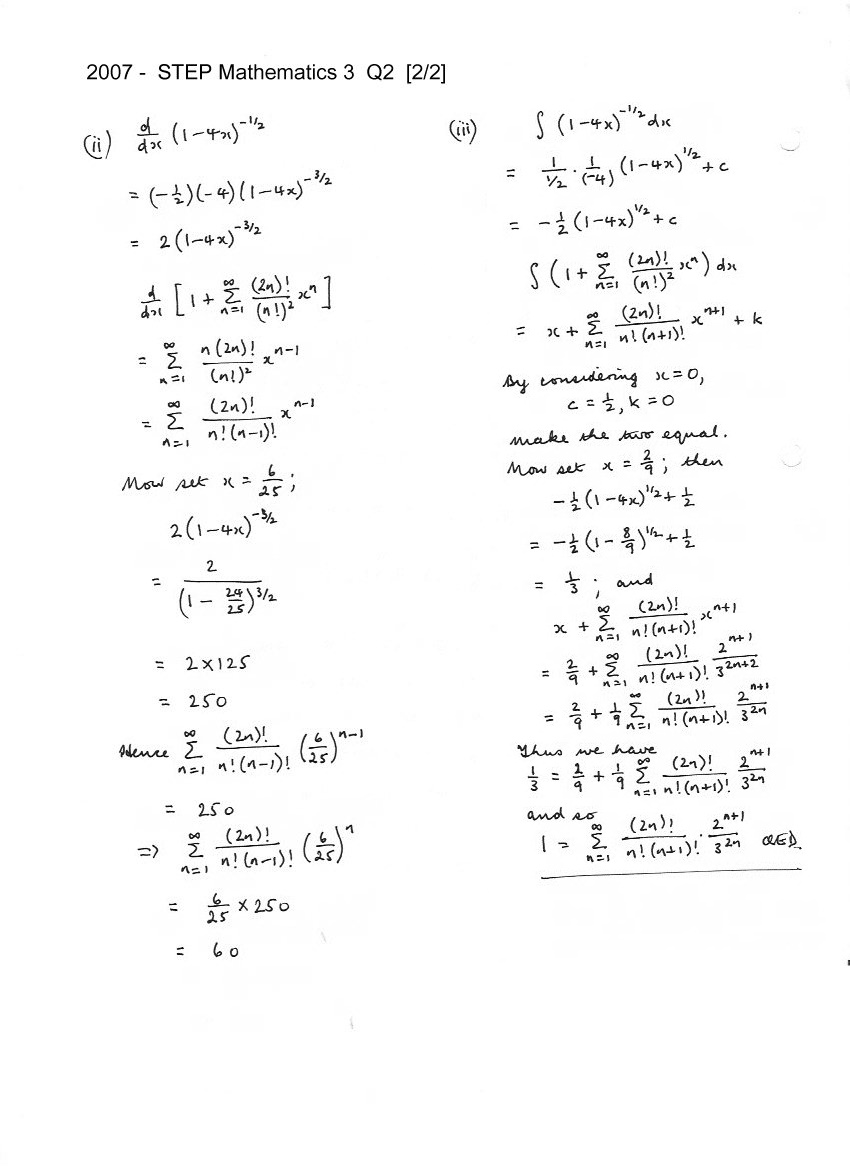 2007 - STEP Mathematics 3 Q2 [2/2]
(ii) d/dx (1-4x)^{-1/2}
= (-1/2)(-4)(1-4x)^{-3/2}
= 2(1-4x)^{-3/2}
d/dx [1 + ∑_{n=1}^{∞} (2n)!/(n!)² x^n]
= ∑_{n=1}^{∞} n(2n)!/(n!)² x^{n-1}
= ∑_{n=1}^{∞} (2n)!/(n!(n-1)!) x^{n-1}
Now set x = 6/25 ;
2(1-4x)^{-3/2}
= 2/(1 - 24/25)^{3/2}
= 2×125
= 250
Hence ∑_{n=1}^{∞} (2n)!/(n!(n-1)!) (6/25)^{n-1}
= 250
=> ∑_{n=1}^{∞} (2n)!/(n!(n-1)!) (6/25)^n
= 6/25 × 250
= 60
(iii) ∫ (1-4x)^{-1/2} dx
= 1/(1/2) · 1/(-4) (1-4x)^{1/2} + c
= -1/2 (1-4x)^{1/2} + c
∫ (1 + ∑_{n=1}^{∞} (2n)!/(n!)² x^n) dx
= x + ∑_{n=1}^{∞} (2n)!/(n!(n+1)!) x^{n+1} + k
By considering x=0,
c = 1/2, k = 0
make the two equal.
Now set x = 2/9 ; then
-1/2 (1-4x)^{1/2} + 1/2
= -1/2 (1 - 8/9)^{1/2} + 1/2
= 1/3 ; and
x + ∑_{n=1}^{∞} (2n)!/(n!(n+1)!) x^{n+1}
= 2/9 + ∑_{n=1}^{∞} (2n)!/(n!(n+1)!) 2^{n+1}/3^{2n+2}
= 2/9 + 1/9 ∑_{n=1}^{∞} (2n)!/(n!(n+1)!) 2^{n+1}/3^{2n}
Thus we have
1/3 = 2/9 + 1/9 ∑_{n=1}^{∞} (2n)!/(n!(n+1)!) 2^{n+1}/3^{2n}
and so
1 = ∑_{n=1}^{∞} (2n)!/(n!(n+1)!) · 2^{n+1}/3^{2n} QED.